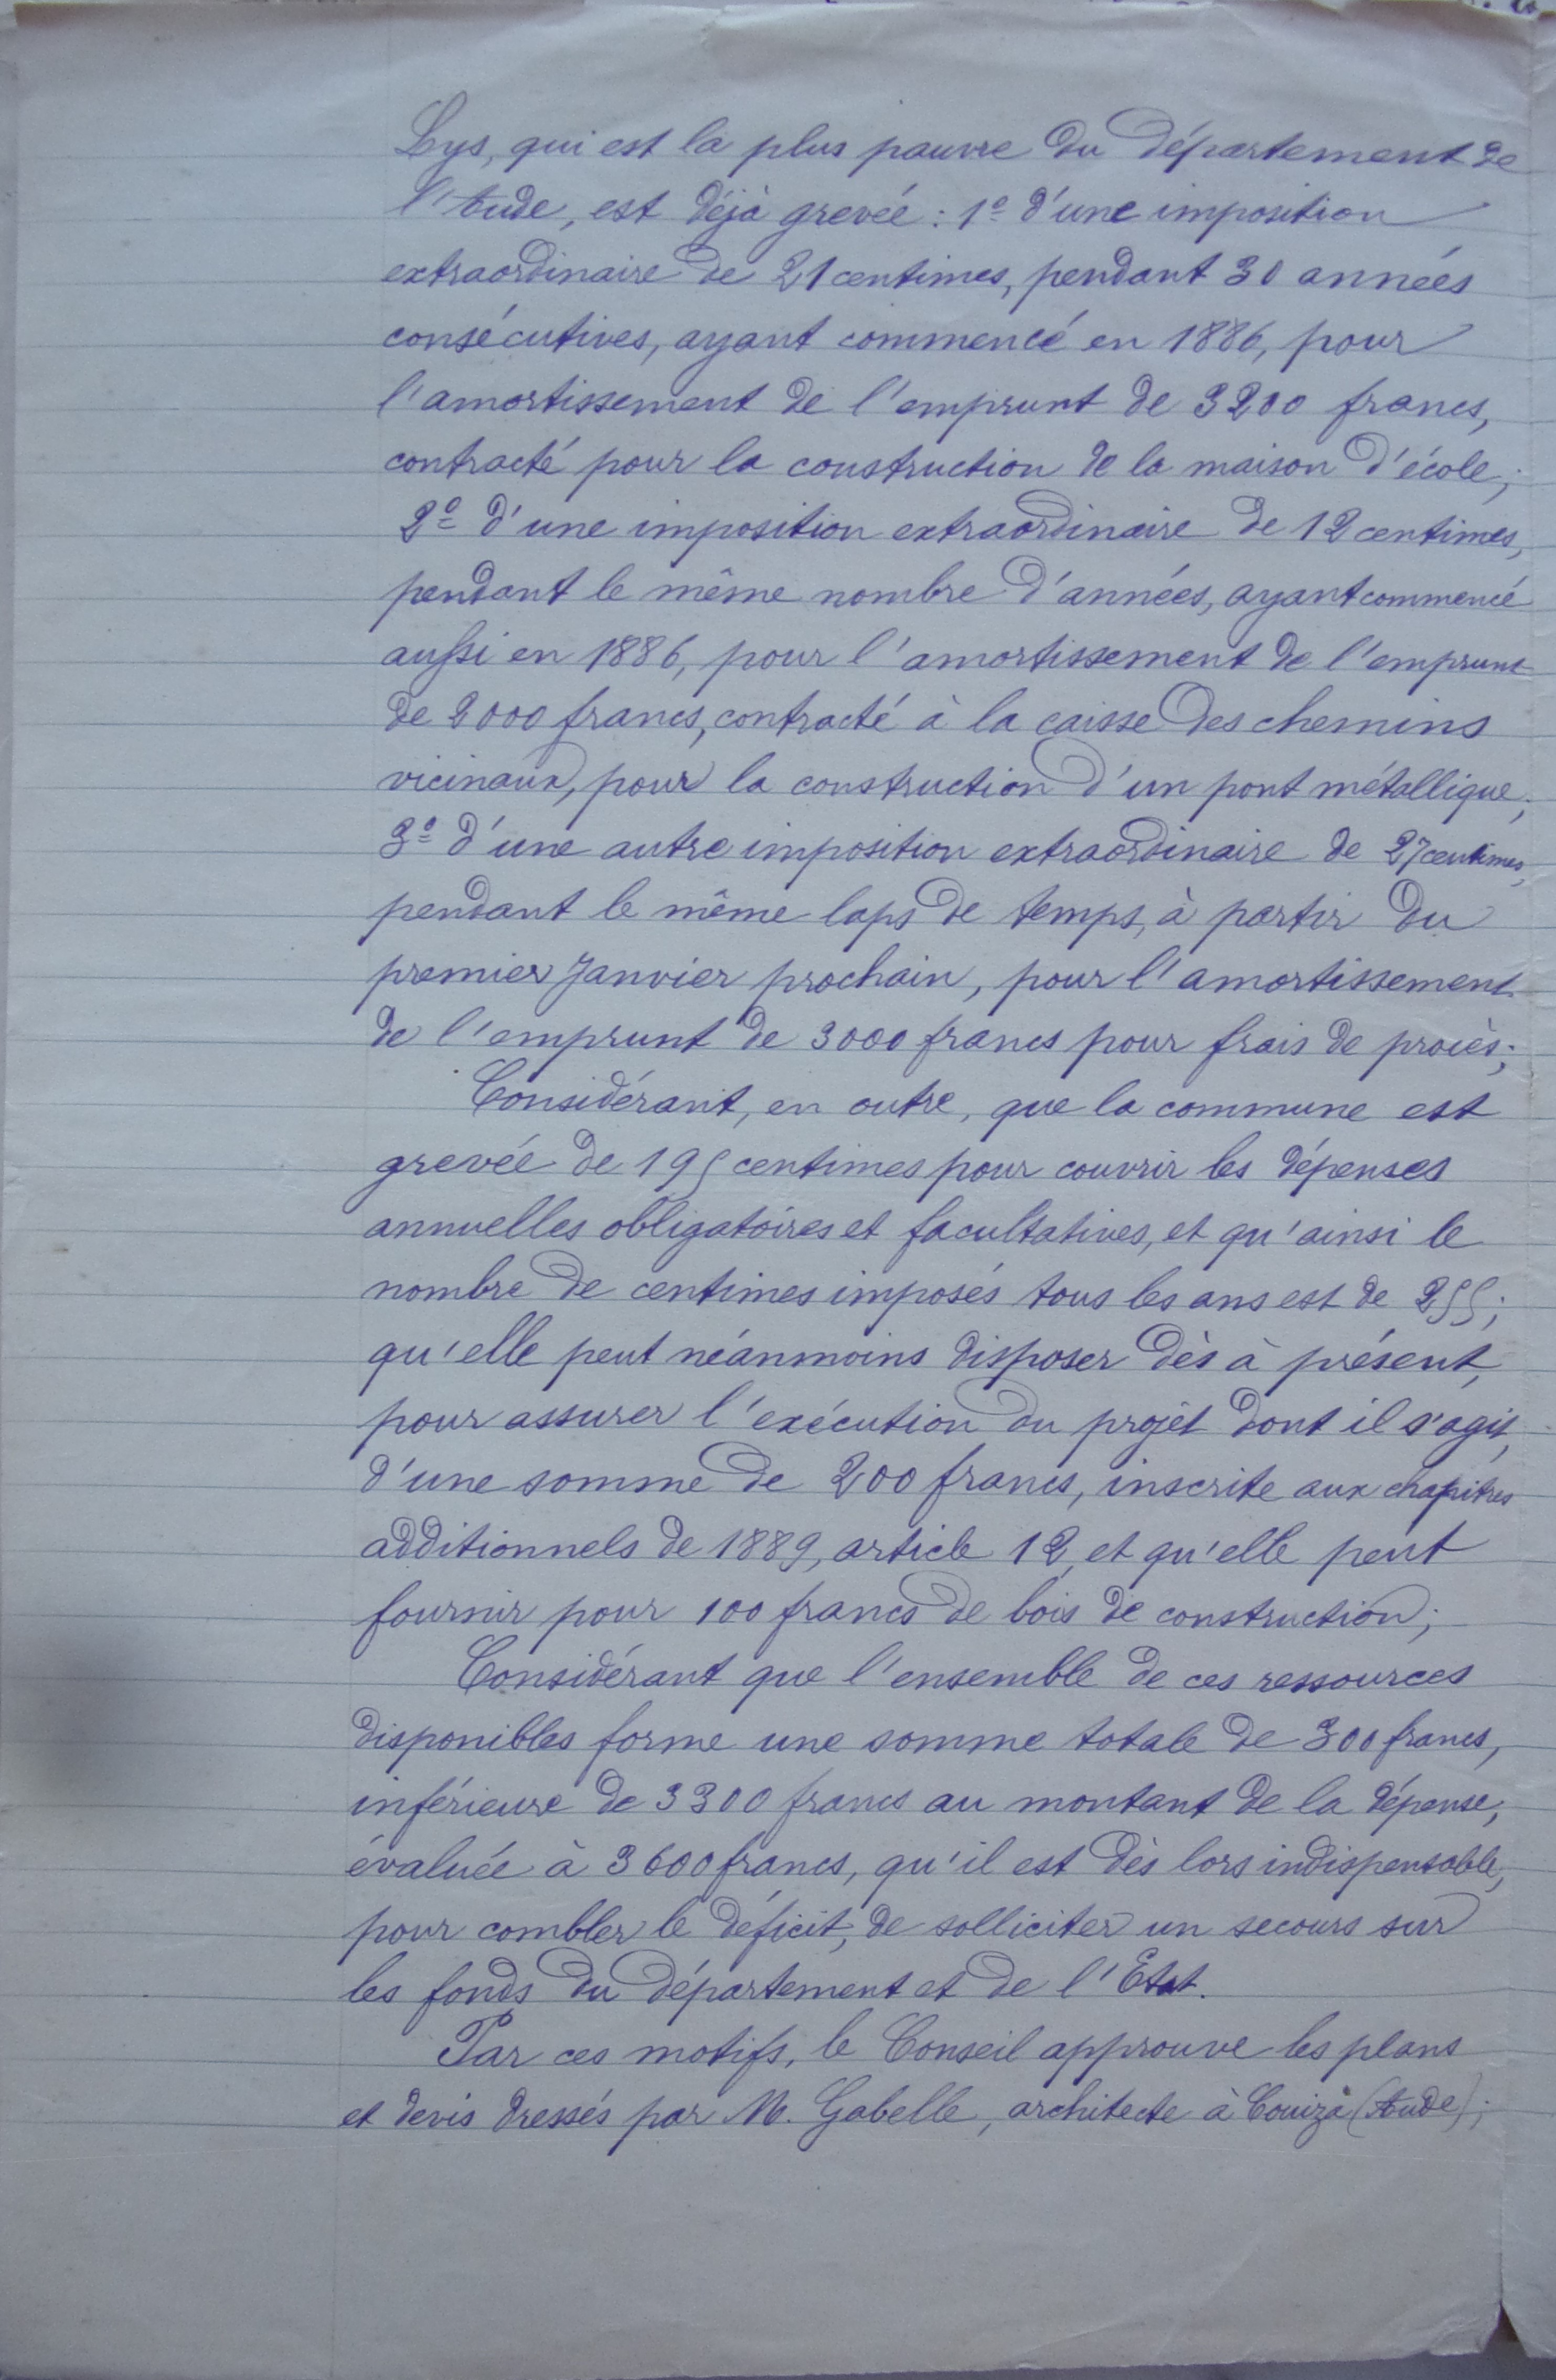 Lys, qui est la plus pauvre du département de
l'Aude, est déjà grevée : 1º d'une imposition
extraordinaire de 21 centimes, pendant 30 années
consécutives, ayant commencé en 1886, pour
l'amortissement de l'emprunt de 3200 francs,
contracté pour la construction de la maison d'école;
2º d'une imposition extraordinaire de 12 centimes,
pendant le même nombre d'années, ayant commencé
aussi en 1886, pour l'amortissement de l'emprunt
de 2000 francs, contracté à la caisse des chemins
vicinaux, pour la construction d'un pont métallique;
3º d'une autre imposition extraordinaire de 27 centimes,
pendant le même laps de temps, à partir du
premier Janvier prochain, pour l'amortissement
de l'emprunt de 3000 francs pour frais de procès;
Considérant, en outre, que la commune est
grevée de 195 centimes pour couvrir les dépenses
annuelles obligatoires et facultatives, et qu'ainsi le
nombre de centimes imposés tous les ans est de 255;
qu'elle peut néanmoins disposer dès à présent,
pour assurer l'exécution du projet dont il s'agit,
d'une somme de 200 francs, inscrite aux chapitres
additionnels de 1889, article 12, et qu'elle peut
fournir pour 100 francs de bois de construction;
Considérant que l'ensemble de ces ressources
disponibles forme une somme totale de 300 francs,
inférieure de 3300 francs au montant de la dépense,
évaluée à 3600 francs, qu'il est dès lors indispensable,
pour combler le déficit, de solliciter un secours sur
les fonds du département et de l'Etat.
Par ces motifs, le Conseil approuve les plans
et devis dressés par M. Gabelle, architecte à Couiza (Aude);